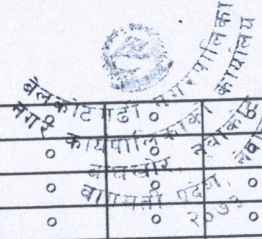 बेलकोटगढी नगरपालिका
नगर कार्यपालिकाको कार्यालय
नुवाकोट
बागमती प्रदेश, नेपाल
२०७३
० ० ०
० ० ०
० ० ०
० ० ०